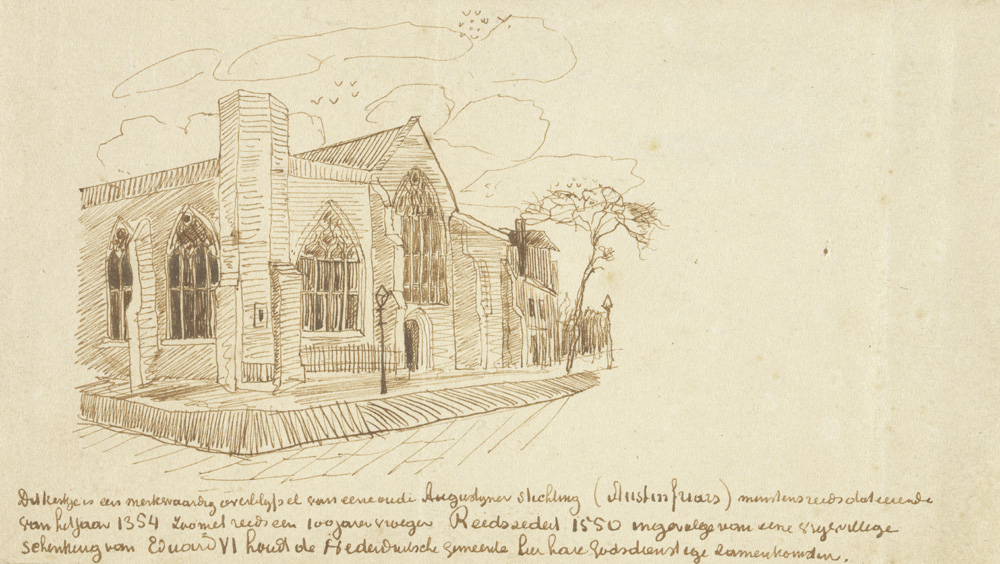 Dit kerkje is een merkwaardig overblijfsel van eene oude Augustyner stichting (Austin friars) minstens reeds dateerende
van het jaar 1354 zoo niet reeds een 100 jaren vroeger Reeds sedert 1550 ingevolge van eene vrijwillige
schenking van Eduard VI houdt de Nederduitsche gemeente hier hare Godsdienstige zamenkomsten.